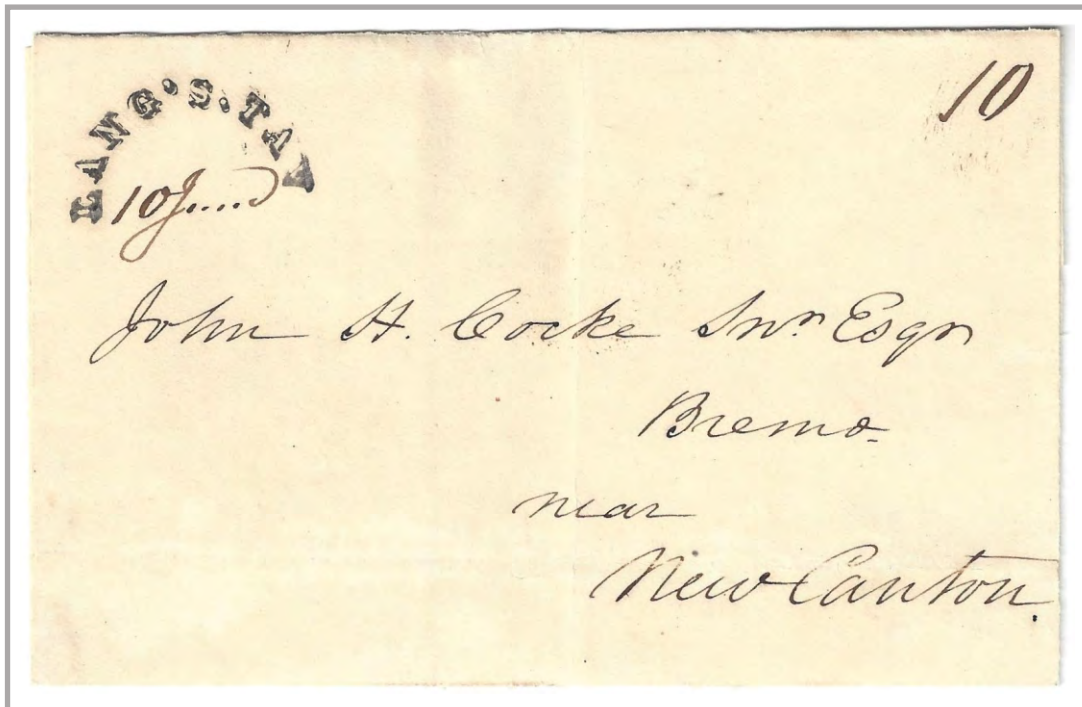 LANG'S.TAV
10
10
John H. Cocke Snr Esqr
Bremo
near
New Canton.